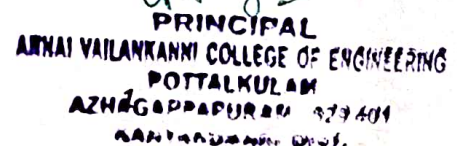 PRINCIPAL
ANNAI VAILANKANNI COLLEGE OF ENGINEERING
POTTALKULAM
AZHAGAPPAPURAM 629 401